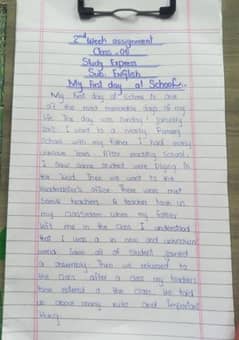 2nd Week assignment
Class :09
Study Express
Sub: English
My First day at School:-
My first day at school is one
of the most memorable days of my
life. The day was Sunday 1 January
I went to a nearby Primary
School with my father. I had many
various After reaching School.
I saw some student were playing in
the field. Then we went to the
headmaster's office. There were met
some teachers. A teacher took us
my classroom when my father
left me in the class. I understand
that I was a in new and unknown
world. all of student joined
a assembly. Then we returned to
the class. after a class my teachers
the class. He told
us about many rules and important
thing.